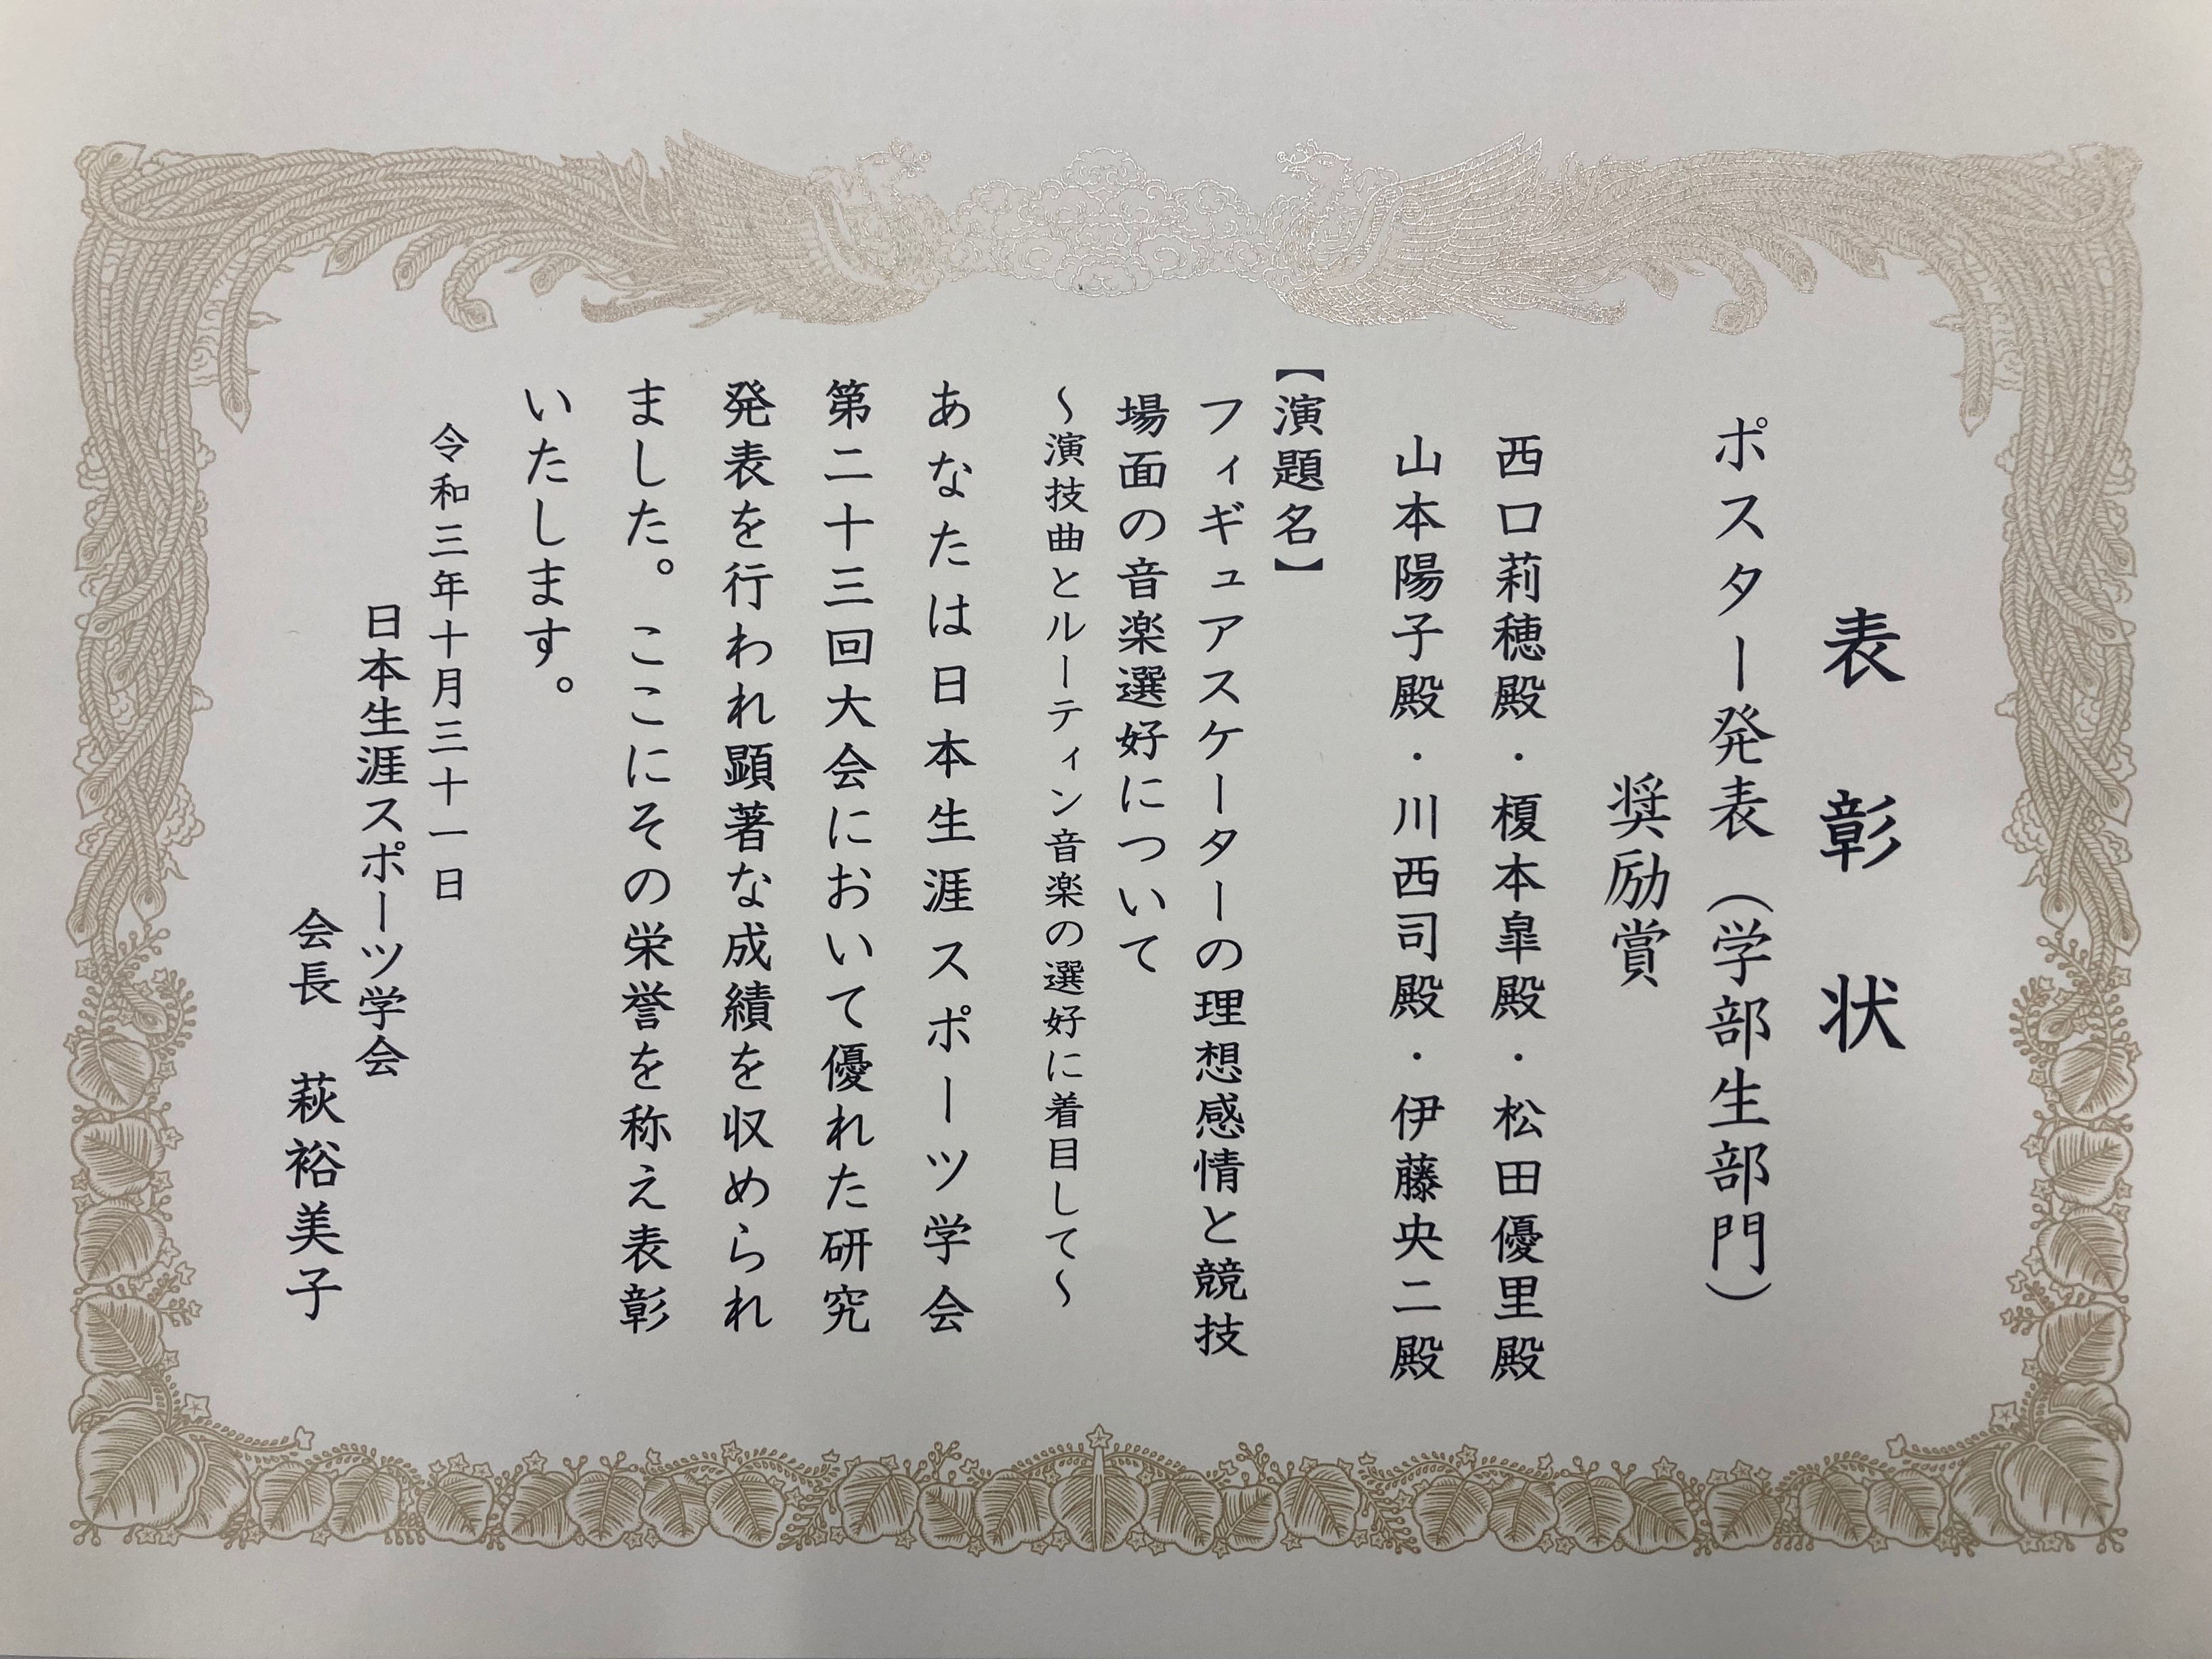 表彰状
ポスター発表（学部生部門）
奨励賞
西口莉穂殿・榎本皐殿・松田優里殿
山本陽子殿・川西司殿・伊藤央二殿
【演題名】
フィギュアスケーターの理想感情と競技
場面の音楽選好について
～演技曲とルーティン音楽の選好に着目して～
あなたは日本生涯スポーツ学会
第二十三回大会において優れた研究
発表を行われ顕著な成績を収められ
ました。ここにその栄誉を称え表彰
いたします。
令和三年十月三十一日
日本生涯スポーツ学会
会長　萩裕美子